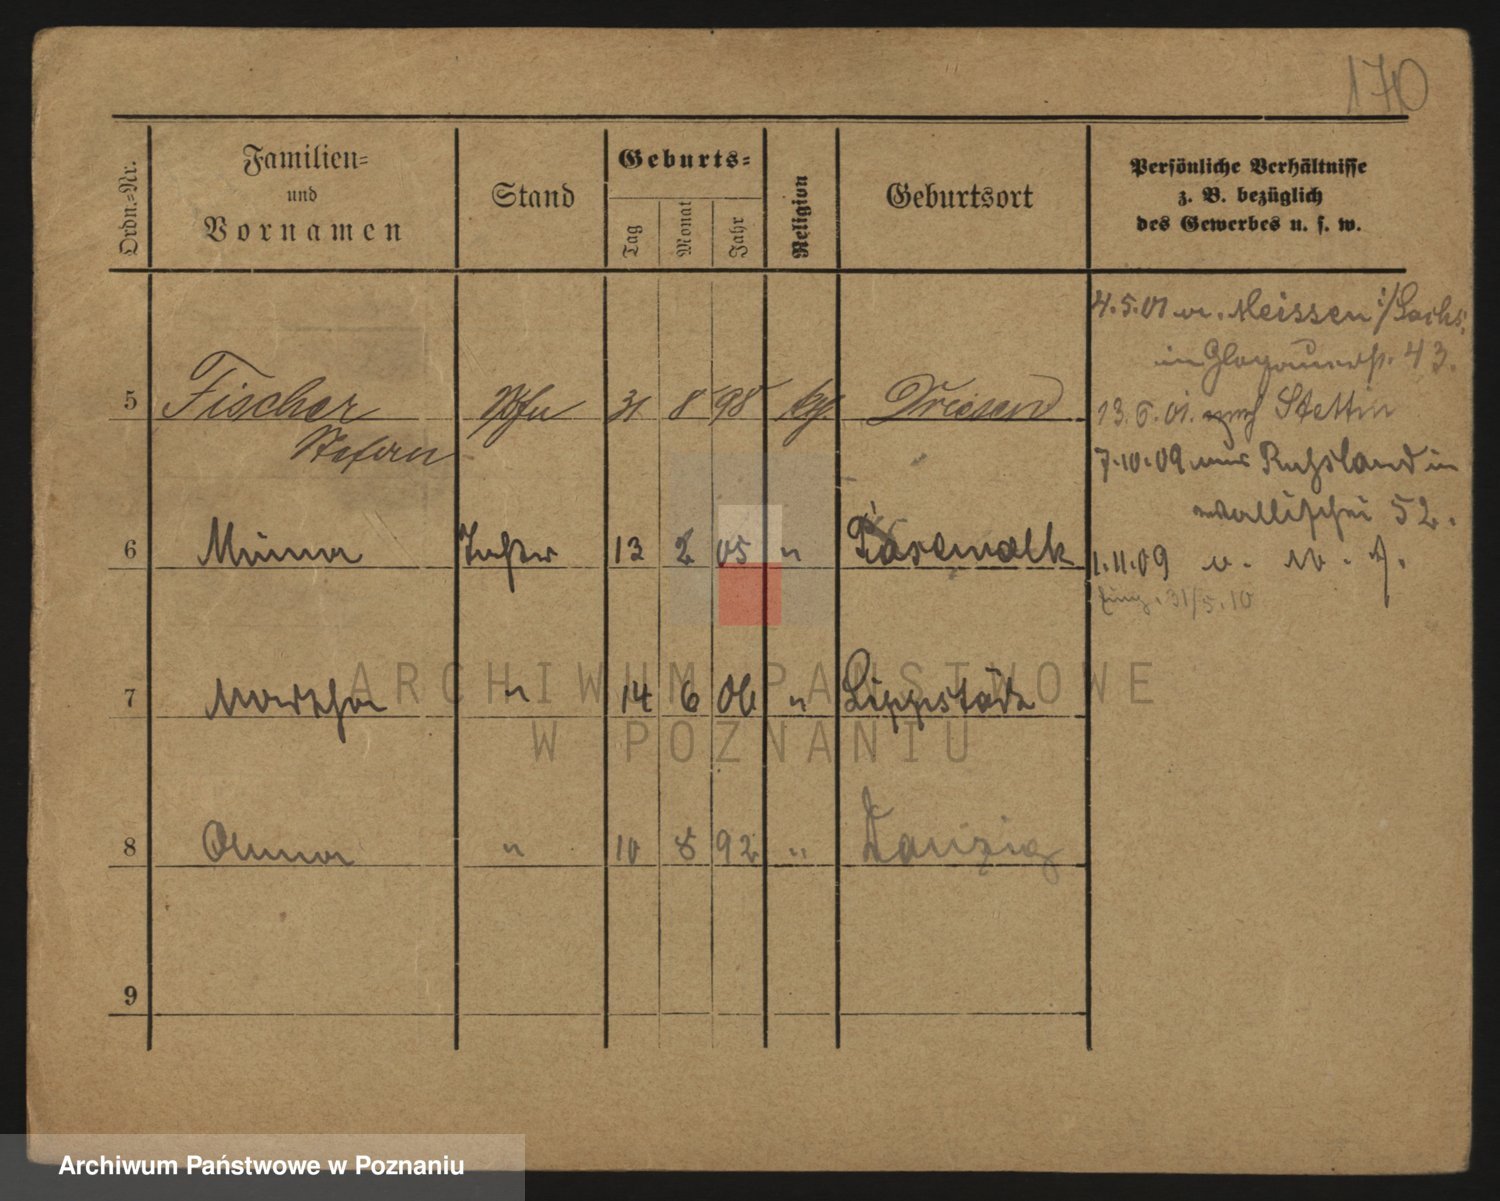 170
Ordn.=Nr.
Familien=
und
Vornamen
Stand
Geburts=
Tag
Monat
Jahr
Religion
Geburtsort
Persönliche Verhältnisse
z. B. bezüglich
des Gewerbes u. s. w.
4.5.01 v. Meissen i/Sachs.
in Glogauerstr. 43.
5 Fischer 31 8 98 Driesen
Stefan
13.6.01. nach Stettin
7.10.09 aus Russland in
Wallischei 52.
6 Minna Tochter 13 2 05 " Pasewalk
1.11.09 v.
31/5.10
7 Martha " 14 6 06 " Lippstadt
8 Anna " 10 8 92 " Danzig
9
ARCHIWUM PAŃSTWOWE
W POZNANIU
Archiwum Państwowe w Poznaniu